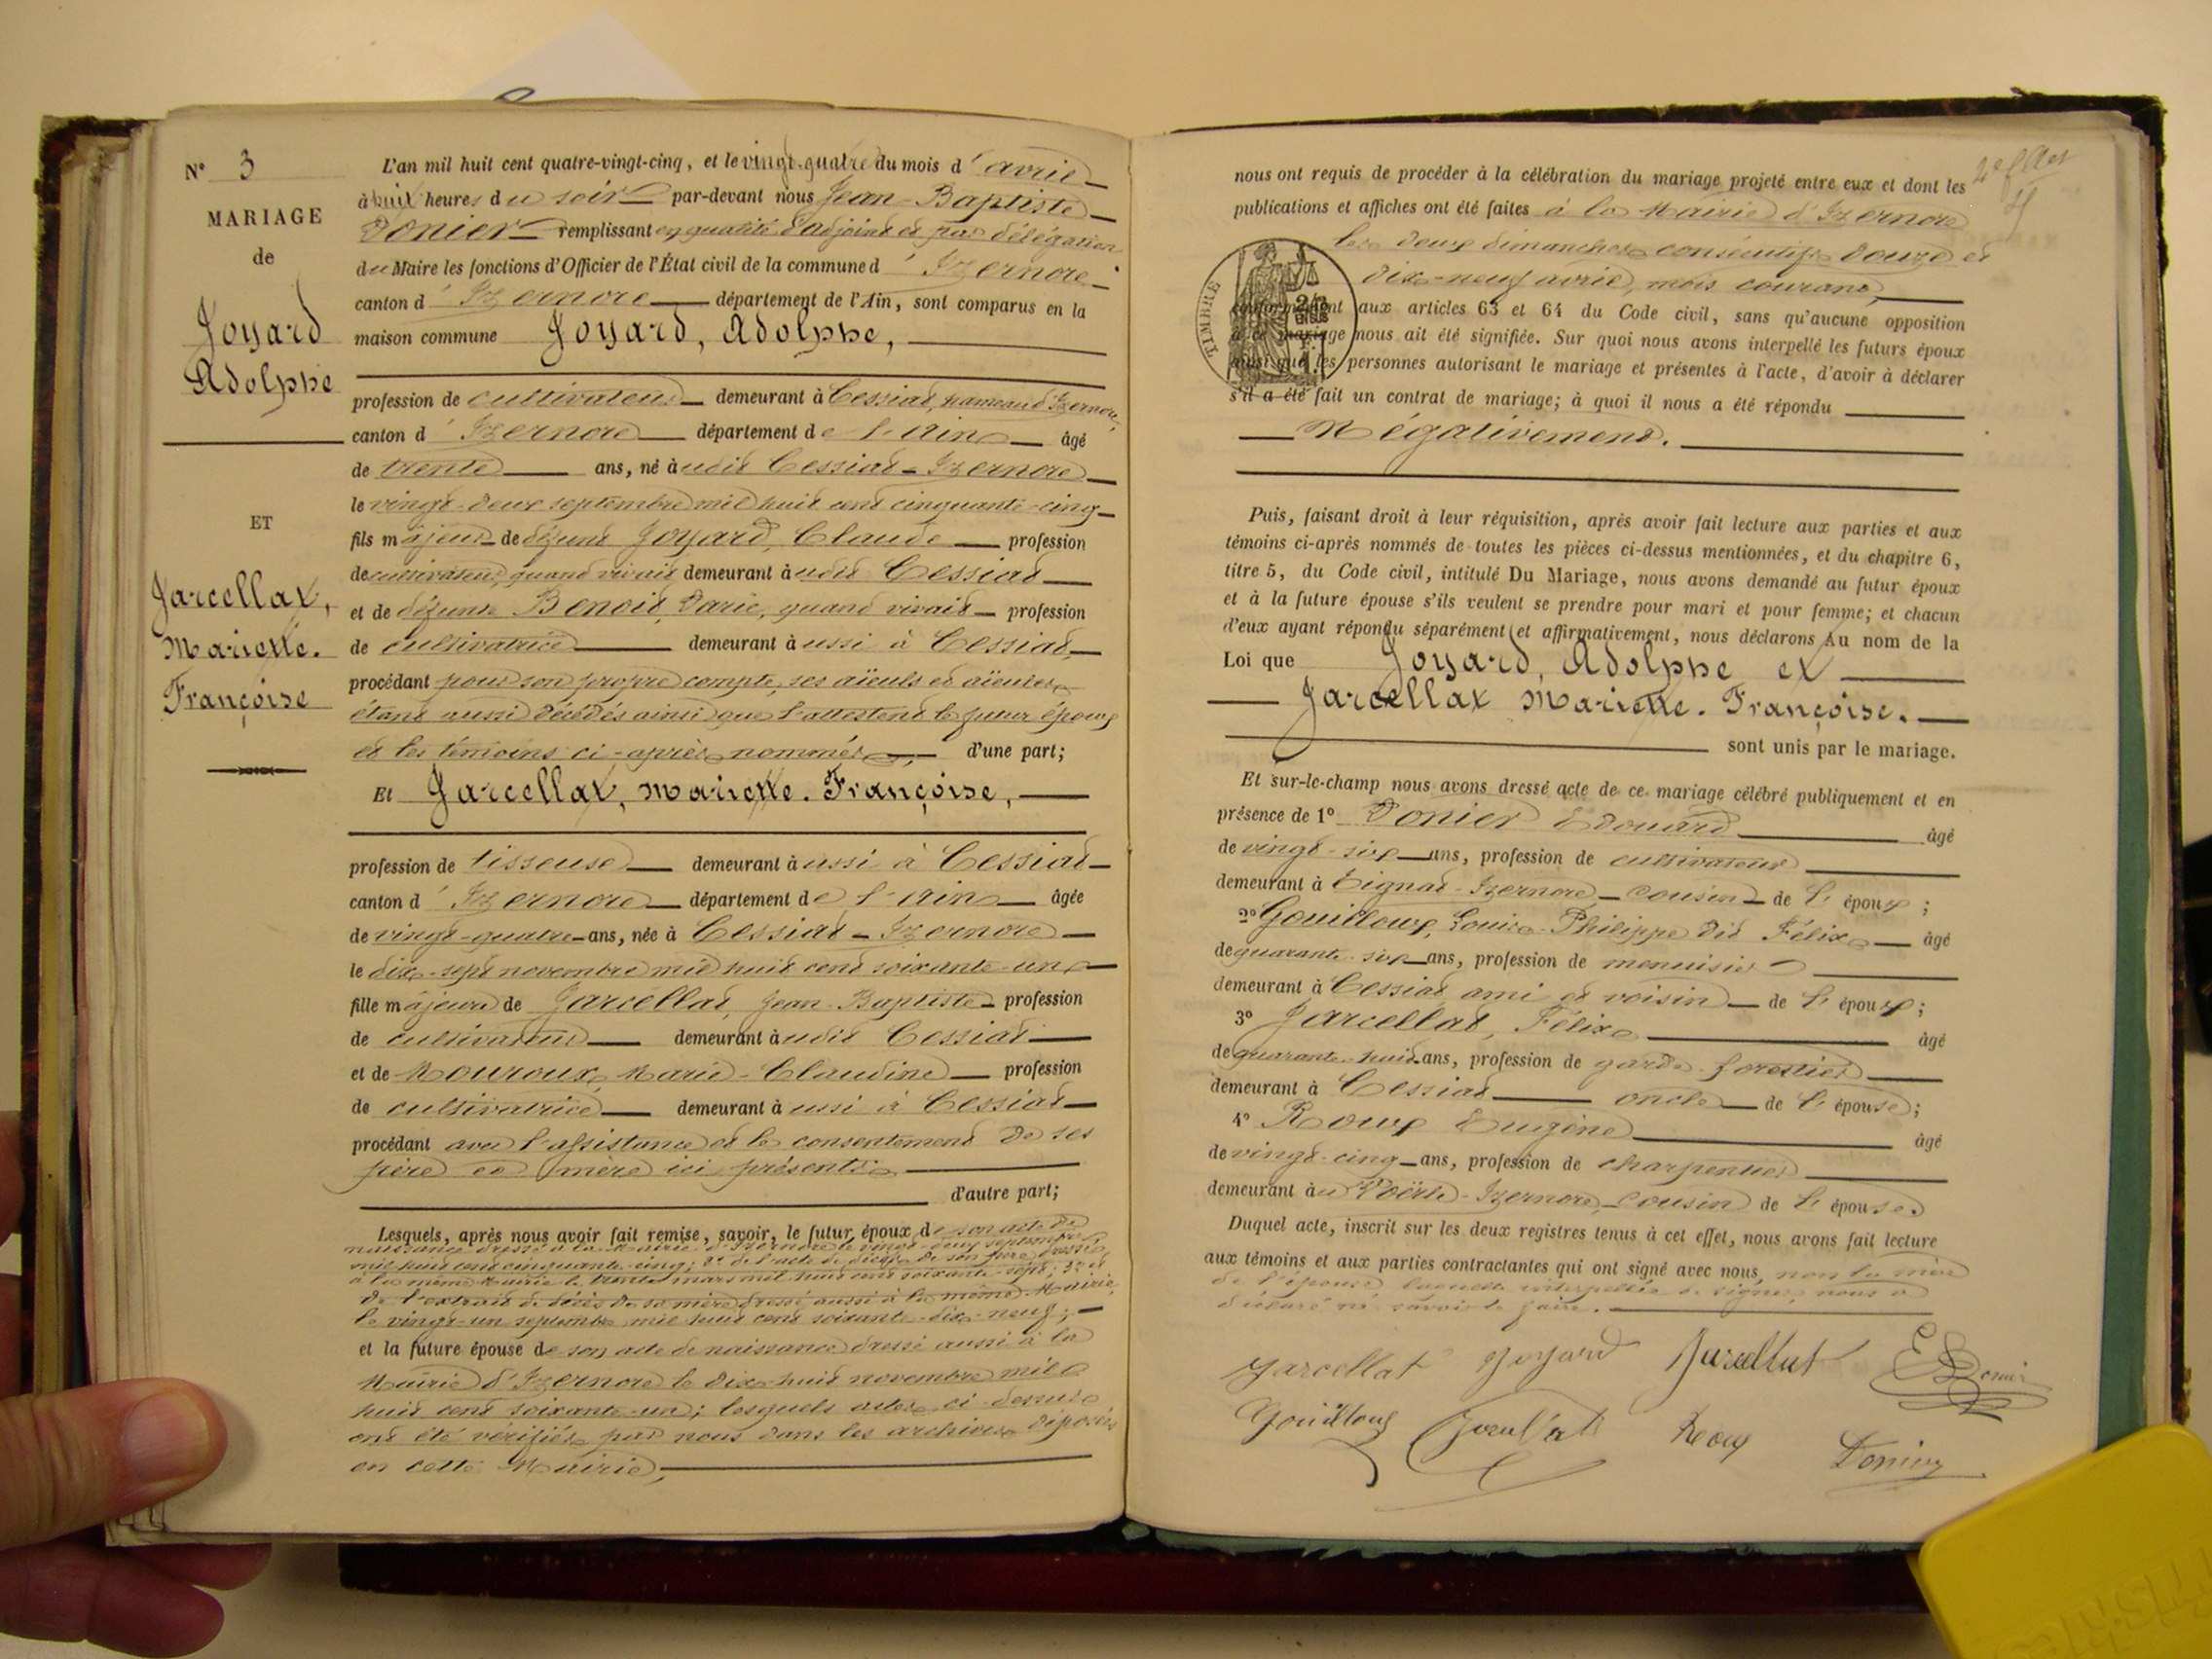 N° 3
MARIAGE
de
Joyard
Adolphe
ET
Jarcellat,
Mariette.
Françoise
L'an mil huit cent quatre-vingt-cinq, et le vingt-quatre du mois d'avril
à huit heures du soir par-devant nous Jean-Baptiste
Donier remplissant en qualité d'adjoint et par délégation
du Maire les fonctions d'Officier de l'État civil de la commune d'Izernore
canton d'Izernore département de l'Ain, sont comparus en la
maison commune Joyard, Adolphe,
profession de cultivateur demeurant à Cessiat, hameau d'Izernore,
canton d'Izernore département de l'Ain âgé
de trente ans, né audit Cessiat-Izernore
le vingt-deux septembre mil huit cent cinquante-cinq
fils majeur de défunt Joyard, Claude profession
de cultivateur, quand vivait demeurant audit Cessiat
et de défunte Benoit, Marie, quand vivait profession
de cultivatrice demeurant aussi à Cessiat,
procédant pour son propre compte, ses aïeuls et aïeules
étant aussi décédés ainsi que l'attestent le futur époux
et les témoins ci-après nommés, d'une part;
Et Jarcellat, Mariette. Françoise,
profession de tisseuse demeurant aussi à Cessiat
canton d'Izernore département de l'Ain âgée
de vingt-quatre ans, née à Cessiat-Izernore
le dix-sept novembre mil huit cent soixante-un
fille majeure de Jarcellat, Jean-Baptiste profession
de cultivateur demeurant audit Cessiat
et de Mouroux, Marie-Claudine profession
de cultivatrice demeurant aussi à Cessiat
procédant avec l'assistance et le consentement de ses
père et mère ici présents
d'autre part;
Lesquels, après nous avoir fait remise, savoir, le futur époux de son acte de
naissance dressé à la Mairie d'Izernore le vingt-deux septembre
mil huit cent cinquante-cinq; 2° de l'acte de décès de son père dressé
à la même Mairie le trente mars mil huit cent soixante-sept; 3° et
de l'extrait de décès de sa mère dressé aussi à la même Mairie,
le vingt-un septembre mil huit cent soixante-dix-neuf;
et la future épouse de son acte de naissance dressé aussi à la
Mairie d'Izernore le dix-huit novembre mil
huit cent soixante-un; lesquels actes ci-dessus
ont été vérifiés par nous dans les archives déposées
en cette Mairie,
nous ont requis de procéder à la célébration du mariage projeté entre eux et dont les
publications et affiches ont été faites à la Mairie d'Izernore
les deux dimanches consécutifs douze et
dix-neuf avril, mois courant,
TIMBRE
conformément aux articles 63 et 64 du Code civil, sans qu'aucune opposition
à ce mariage nous ait été signifiée. Sur quoi nous avons interpellé les futurs époux
ainsi que les personnes autorisant le mariage et présentes à l'acte, d'avoir à déclarer
s'il a été fait un contrat de mariage; à quoi il nous a été répondu
Négativement.
Puis, faisant droit à leur réquisition, après avoir fait lecture aux parties et aux
témoins ci-après nommés de toutes les pièces ci-dessus mentionnées, et du chapitre 6,
titre 5, du Code civil, intitulé Du Mariage, nous avons demandé au futur époux
et à la future épouse s'ils veulent se prendre pour mari et pour femme; et chacun
d'eux ayant répondu séparément et affirmativement, nous déclarons Au nom de la
Loi que Joyard, Adolphe et
Jarcellat Mariette. Françoise.
sont unis par le mariage.
Et sur-le-champ nous avons dressé acte de ce mariage célébré publiquement et en
présence de 1° Donier Edouard âgé
de vingt-six ans, profession de cultivateur
demeurant à Tignat-Izernore cousin de l'époux;
2° Gouilloux, Louis-Philippe dit Félix âgé
de quarante-six ans, profession de menuisier
demeurant à Cessiat ami et voisin de l'époux;
3° Jarcellat, Félix âgé
de quarante-huit ans, profession de garde-forestier
demeurant à Cessiat oncle de l'épouse;
4° Roux Eugène âgé
de vingt-cinq ans, profession de charpentier
demeurant au Voërle-Izernore, cousin de l'épouse.
Duquel acte, inscrit sur les deux registres tenus à cet effet, nous avons fait lecture
aux témoins et aux parties contractantes qui ont signé avec nous, non la mère
de l'épouse laquelle interpellée de signer, nous a
déclaré ne savoir le faire.
Jarcellat Joyard Jarcellat E Donier
Gouilloux Jarcellat Roux Donier